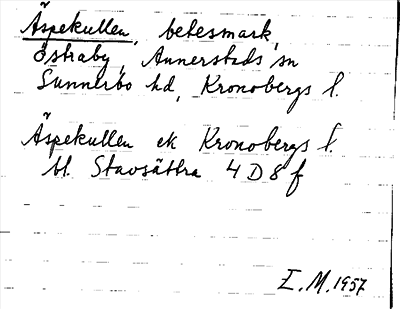 Äspekullen, betesmark,
Östraby, Annerstads sn
Sunnerbo hd, Kronobergs l.
Äspekullen ek Kronobergs l.
bl. Stavsättra 4 D 8 f
I. M. 1957